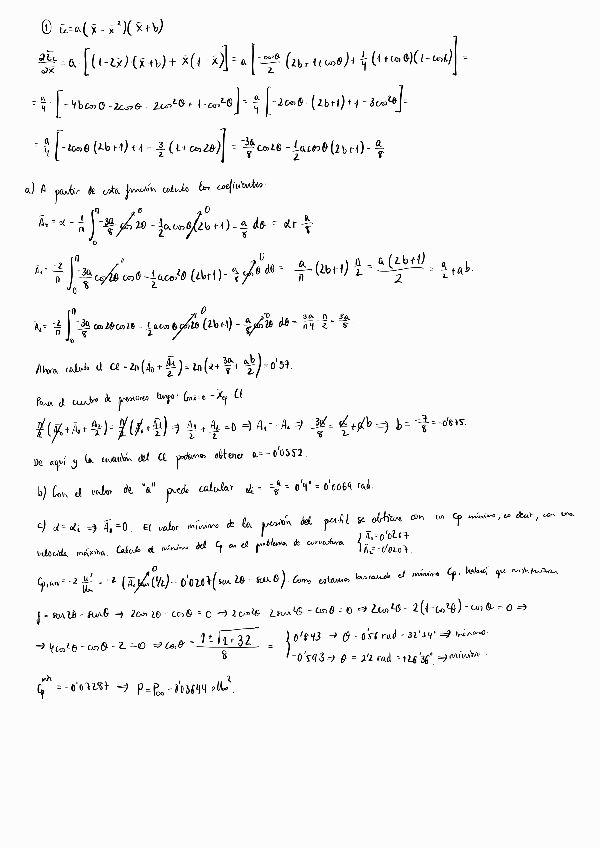 ① z̄c = a(x̄ - x̄²)(x̄+b)
∂z̄c/∂x̄ = a·[(1-2x̄)(x̄+b) + x̄(1-x̄)] = a[-cosθ/2 (2b+1+cosθ) + 1/4 (1+cosθ)(1-cosθ)] =
= a/4 [-4bcosθ - 2cosθ - 2cos²θ + 1 - cos²θ] = a/4 [-2cosθ (2b+1) + 1 - 3cos²θ] =
= a/4 [-2cosθ(2b+1) + 1 - 3/2 (1+cos2θ)] = -3a/8 cos2θ - 1/2 a cosθ(2b+1) - a/8
a) A partir de esta función calculo los coeficientes.
Ā₀ = α - 1/π ∫₀^π -3a/8 cos2θ - 1/2 a cosθ(2b+1) - a/8 dθ = α + a/8.
Ā₁ = -2/π ∫₀^π -3a/8 cos2θ cosθ - 1/2 a cos²θ (2b+1) - a/8 cosθ dθ = a/π (2b+1) π/2 = a(2b+1)/2 = a/2 + ab.
Ā₂ = -2/π ∫₀^π -3a/8 cos2θ cos2θ - 1/2 a cosθ cos2θ (2b+1) - a/8 cos2θ dθ = 3a/π4 · π/2 = 3a/8
Ahora calculo el Cl = 2π(Ā₀ + Ā₁/2) = 2π(α + 3a/8 + ab/2) = 0'57.
Para el centro de presiones tengo: = -x̄cp Cl
π/2 (Ā₀ + Ā₁ + Ā₂/2) = π/2 (Ā₀ + Ā₁/2) ⇒ Ā₁/2 + Ā₂/2 = 0 ⇒ A₁ = -A₂ ⇒ -3a/8 = a/2 + ab ⇒ b = -7/8 = -0'875.
De aquí y la ecuación del Cl podemos obtener a = -0'0552.
b) Con el valor de "a" puedo calcular αi = -a/8 = 0'4° = 0'0069 rad.
c) α = αi ⇒ Ā₀ = 0. El valor mínimo de la presión del perfil se obtiene con un Cp mínimo, es decir, con una
velocidad máxima. Calculo el mínimo del Cp en el problema de curvatura { Ā₁ = 0'0207 Ā₂ = -0'0207.
Cp = -2 u'/U∞ = -2 (Ā₀ (θ/2) - 0'0207 (sen2θ - senθ). Como estamos buscando el mínimo Cp, habrá que
f = sen2θ - senθ → 2cos2θ - cosθ = 0 → 2cos²θ - 2sen²θ - cosθ = 0 ⇒ 2cos²θ - 2(1-cos²θ) - cosθ = 0 ⇒
→ 4cos²θ - cosθ - 2 = 0 ⇒ cosθ = 1±√(1+32)/8 = { 0'843 → θ = 0'56 rad = 32'34° → -0'593 → θ = 2'2 rad = 126'36° →
Cp^min = -0'07287 → p = p∞ - 0'03644 ρU∞².